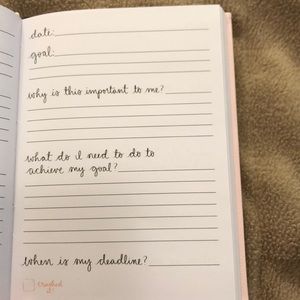 date:
goal:
why is this important to me?
what do I need to do to
achieve my goal?
when is my deadline?
crushed